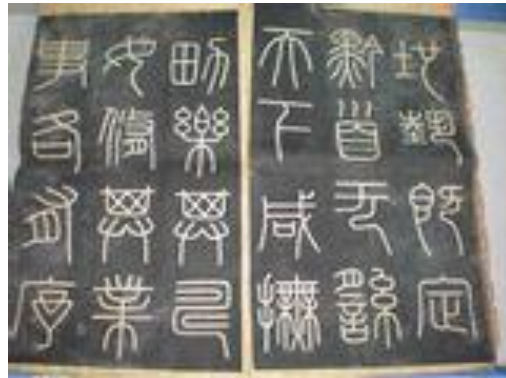 地勢既定
黔首无繇
天下咸撫
男樂其疇
女脩其業
事各有序